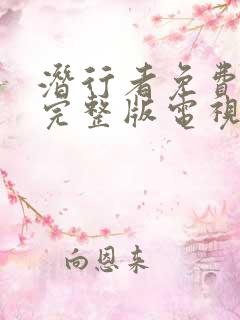 潛行者免費
完整版電視
向恩來